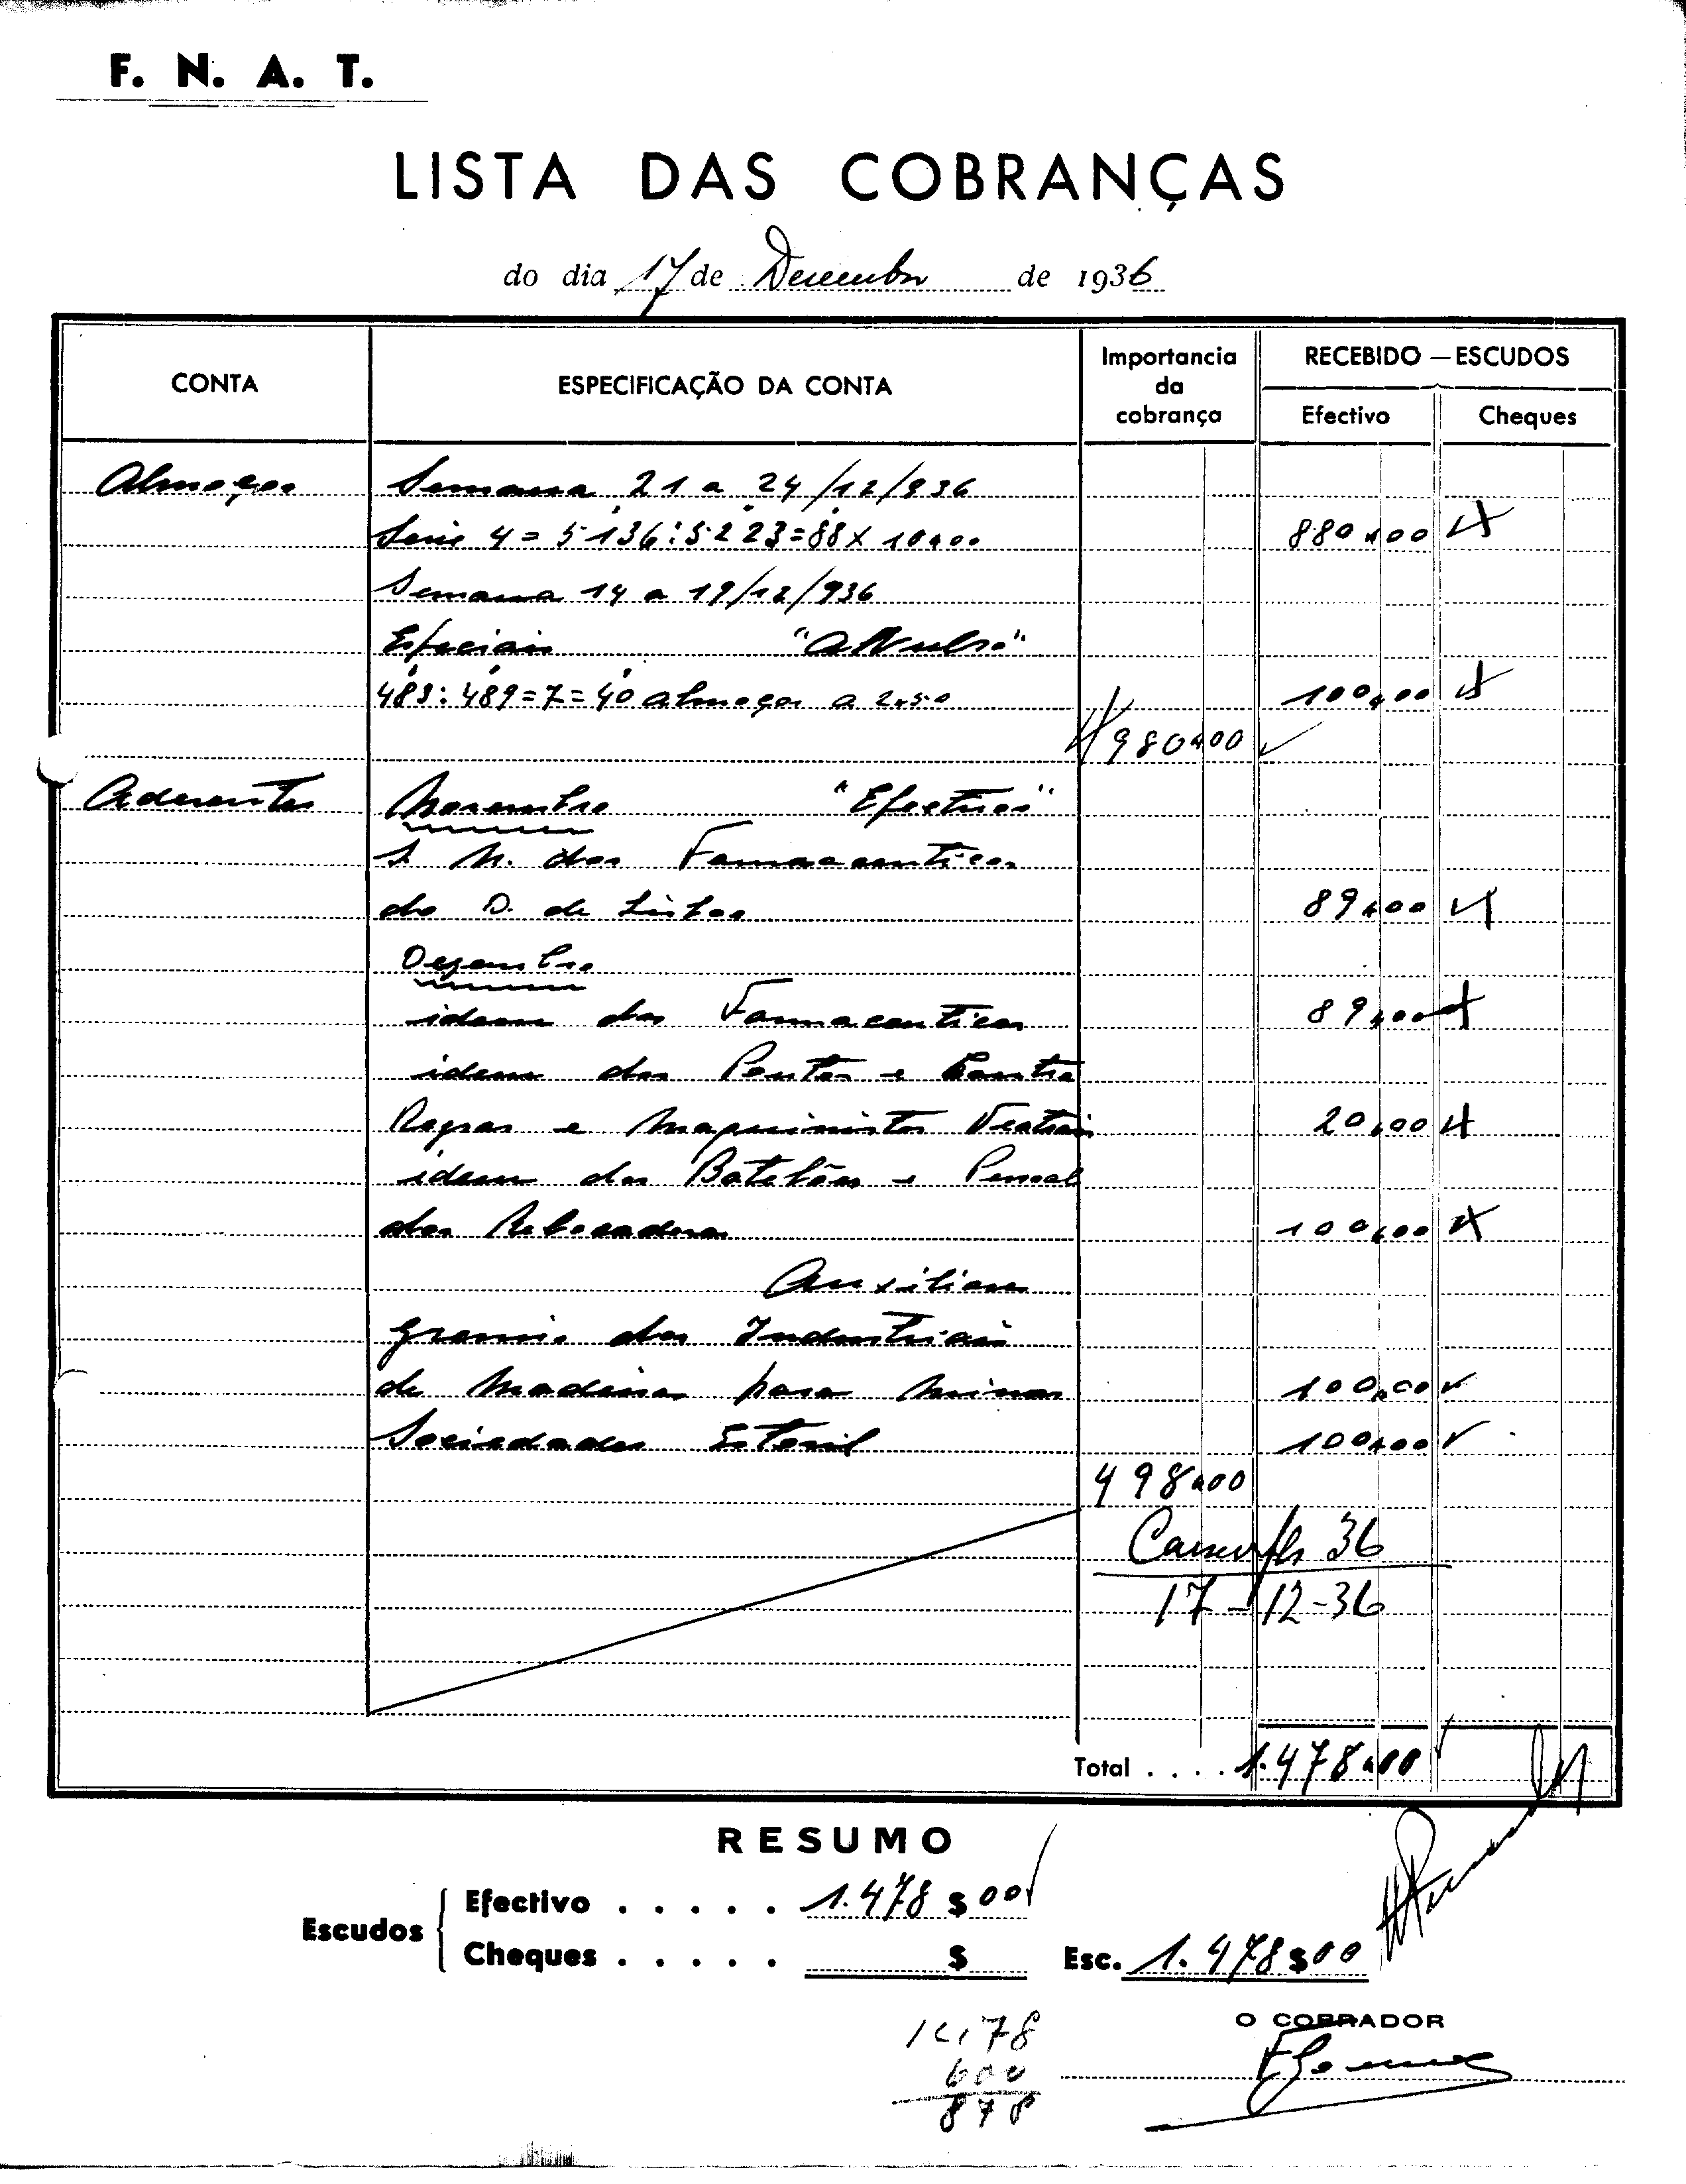 F. N. A. T.
LISTA DAS COBRANÇAS
do dia 17 de Dezembro de 1936
CONTA
ESPECIFICAÇÃO DA CONTA
Importancia da cobrança
RECEBIDO — ESCUDOS
Efectivo
Cheques
Almoços Semana 21 a 24/12/936
Serie 4 = 5136:5223=88 x 10$00 880$00
Semana 14 a 19/12/936
Especiais "Avulso"
483:489=7=40 almoços a 2$50 100$00
980$00
Aderentes Novembro "Efectivos"
S. N. dos Farmaceuticos
do D. de Lisboa 89$00
Dezembro
idem dos Farmaceuticos 89$00
idem dos Pontos e Contra
Regras e Maquinistas Teatrais 20$00
idem dos Batelões e Pessoal
dos Rebocadores 100$00
Auxiliares
Gremio dos Industriais
de Madeiras para Minas 100$00
Sociedades Estoril 100$00
498$00
36
17-12-36
Total .... 1.478$00
RESUMO
Escudos
Efectivo ..... 1.478$00
Cheques ..... $
Esc. 1.478$00
O COBRADOR
1478
600
878